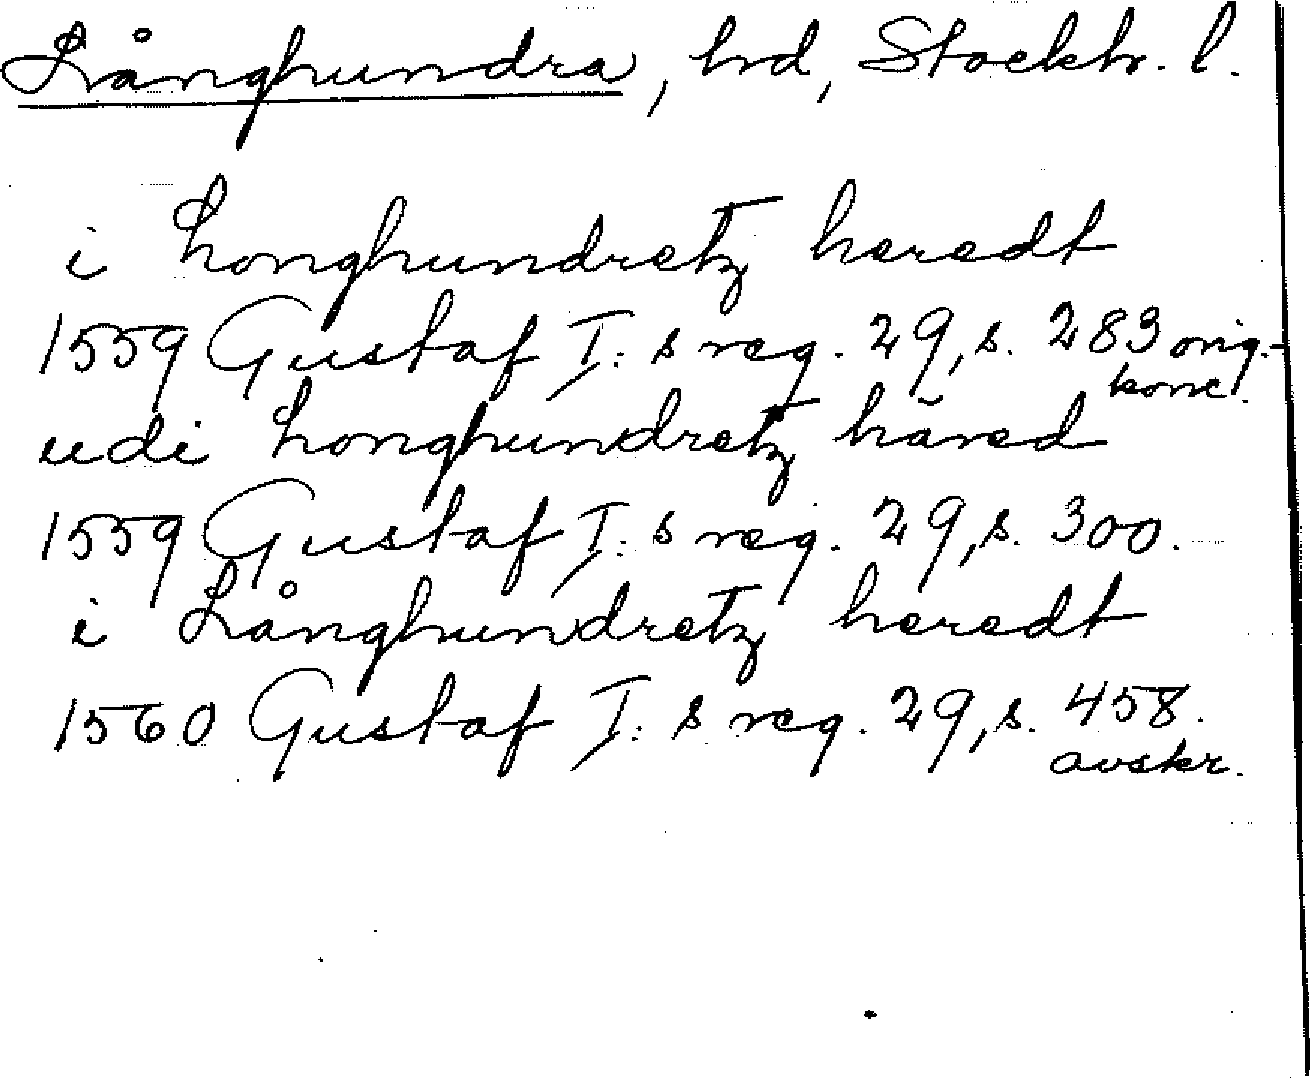 Långhundra, hrd, Stockh. l.
i Longhundretz heredt
1559 Gustaf I:s reg. 29, s. 283 orig.-
konc.
udi Longhundretz häred
1559 Gustaf I:s reg. 29, s. 300.
i Långhundretz heredt
1560 Gustaf I:s reg. 29, s. 458.
avskr.